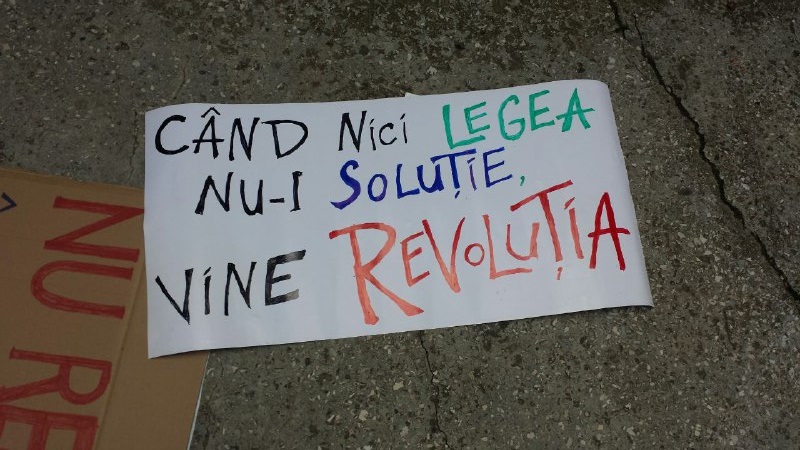 CÂND Nici LEGEA
NU-I SOLUȚIE,
ViNE REVOLUȚiA
NU RE